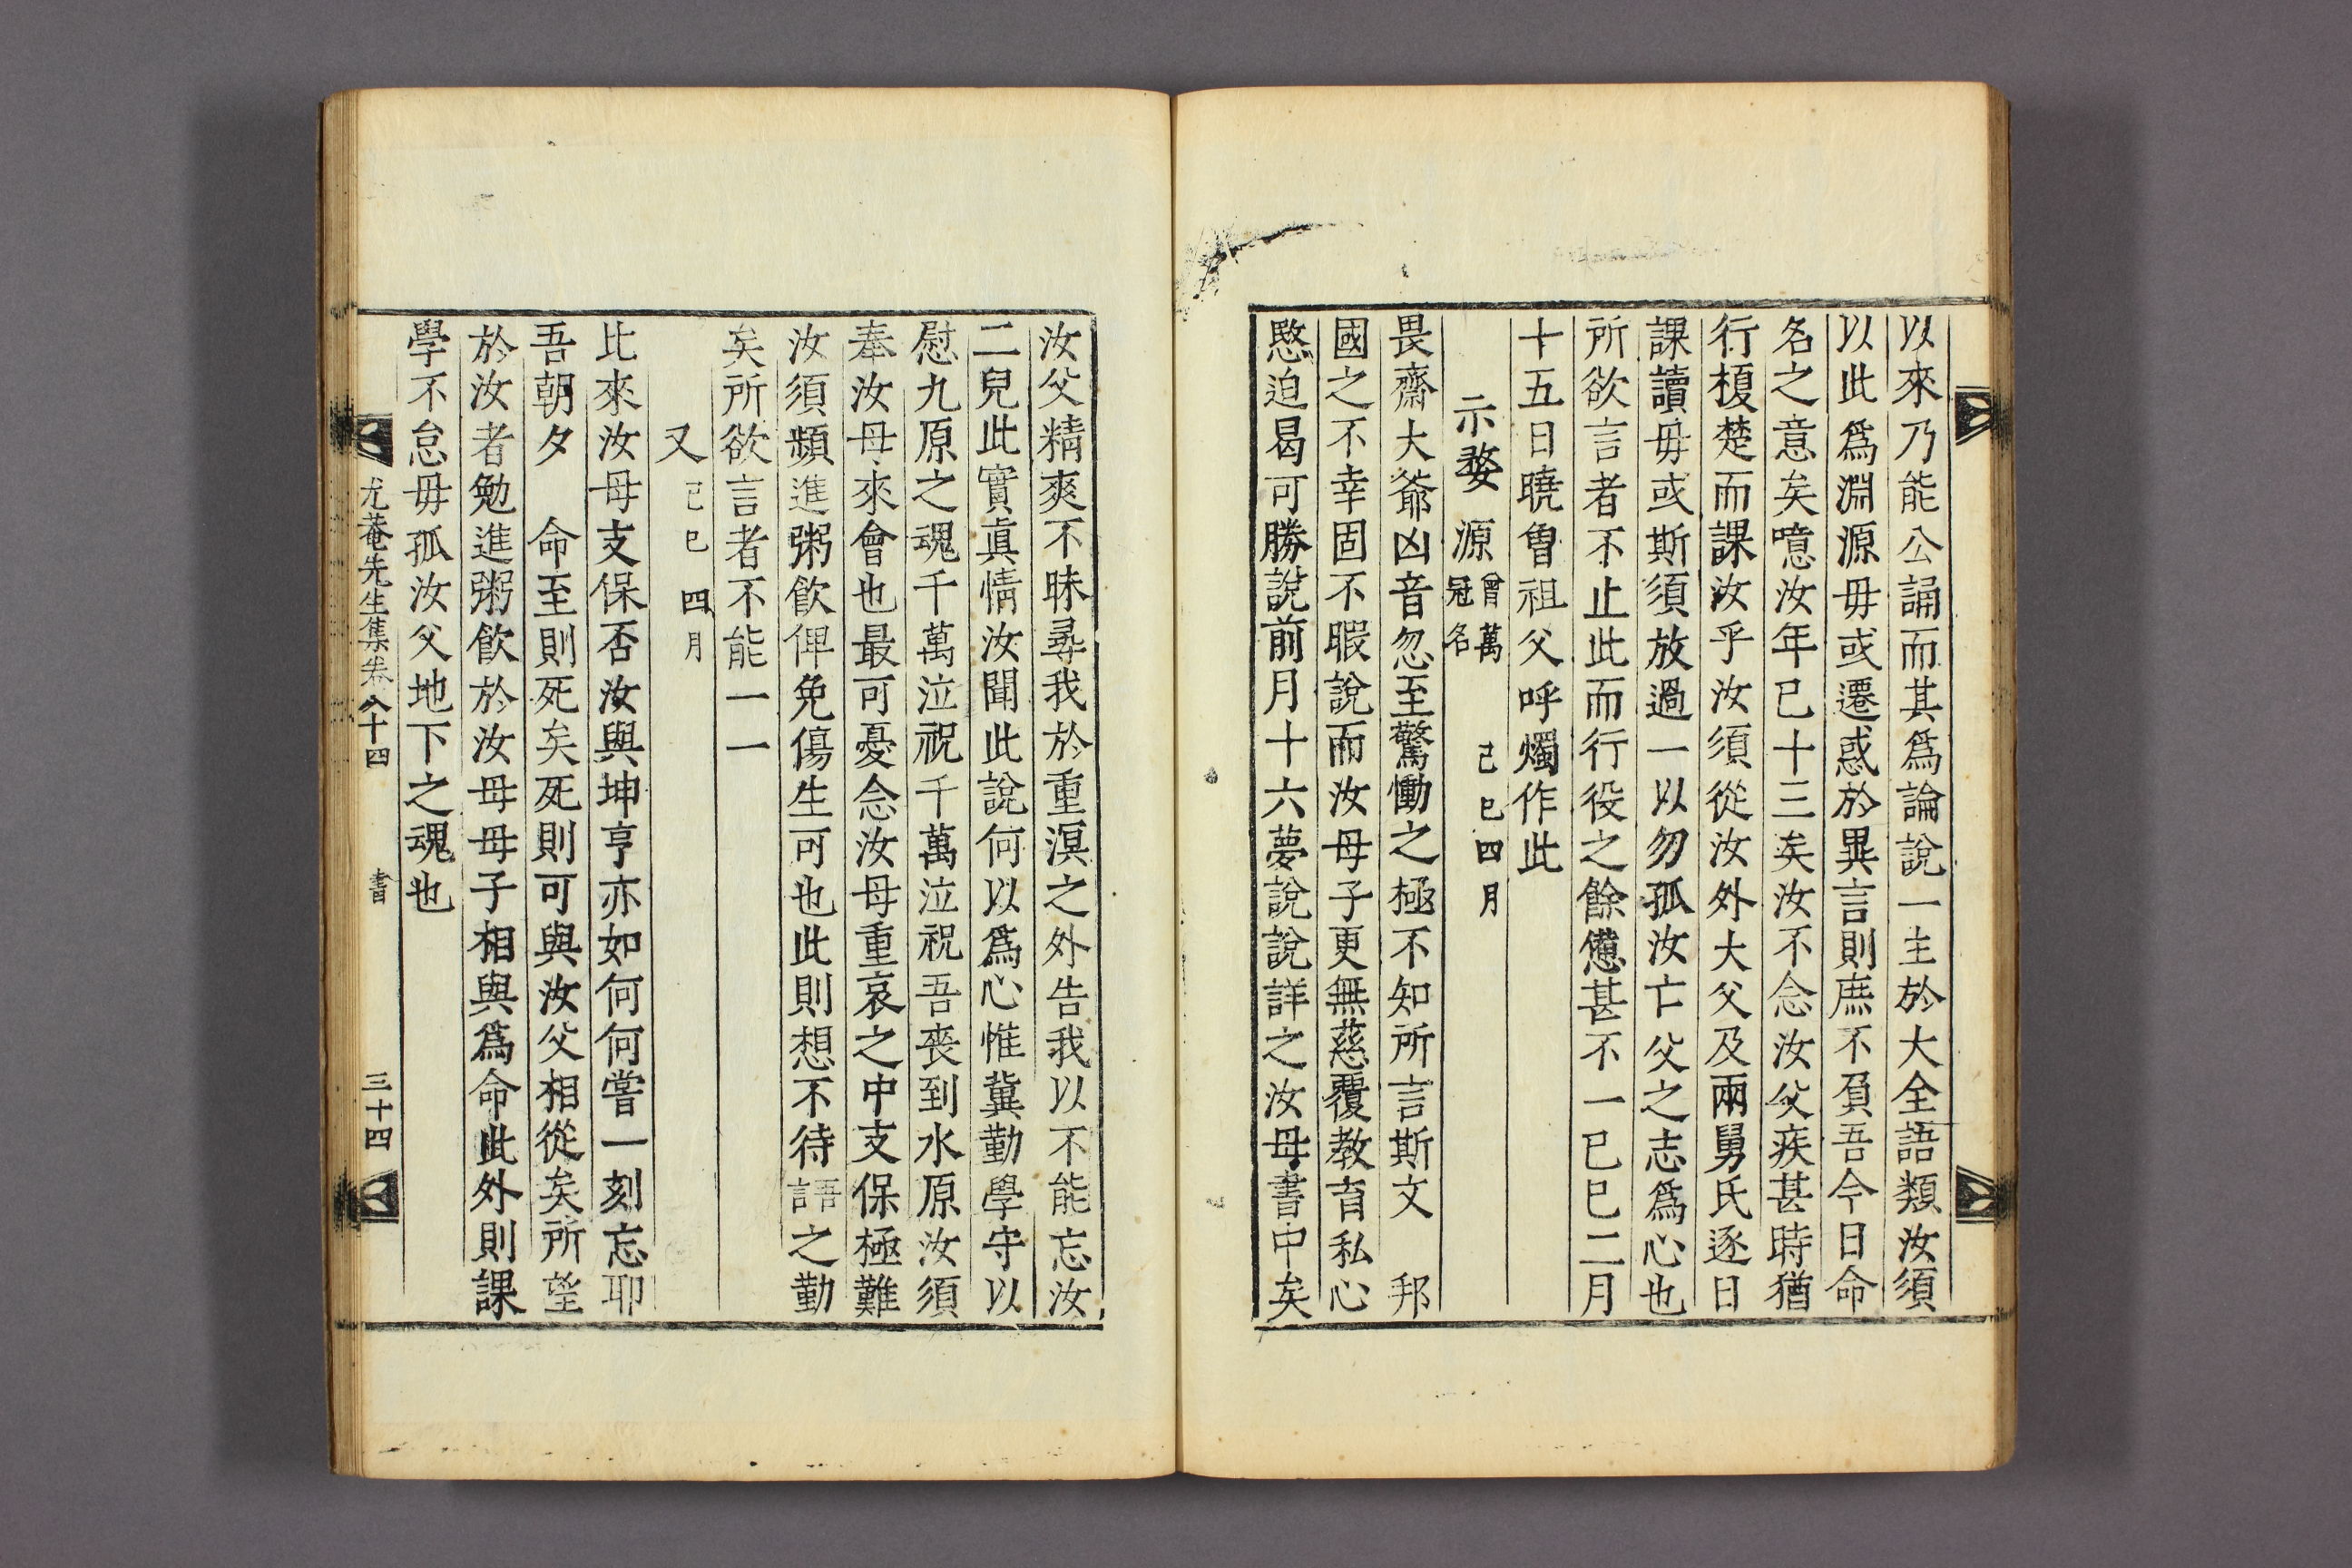 以來乃能公誦而其爲論說一主於大全語類汝須
以此爲淵源毋或遷惑於異言則庶不負吾今日命
名之意矣噫汝年已十三矣汝不念汝父疾甚時猶
行榎楚而課汝乎汝須從汝外大父及兩舅氏逐日
課讀毋或斯須放過一以勿孤汝亡父之志爲心也
所欲言者不止此而行役之餘憊甚不一己巳二月
十五日曉曾祖父呼燭作此
示婺源 曾萬冠名 己巳四月
畏齋大爺凶音忽至驚慟之極不知所言斯文 邦
國之不幸固不暇說而汝母子更無慈覆教育私心
愍迫曷可勝說前月十六夢說說詳之汝母書中矣
汝父精爽不昧尋我於重溟之外告我以不能忘汝
二兒此實眞情汝聞此說何以爲心惟冀勤學守以
慰九原之魂千萬泣祝千萬泣祝吾喪到水原汝須
奉汝母來會也最可憂念汝母重哀之中支保極難
汝須頻進粥飮俾免傷生可也此則想不待語之勤
矣所欲言者不能一一
又 己巳四月
比來汝母支保否汝與坤亨亦如何何嘗一刻忘耶
吾朝夕 命至則死矣死則可與汝父相從矣所望
於汝者勉進粥飮於汝母母子相與爲命此外則課
學不怠毋孤汝父地下之魂也
尤菴先生集卷八十四 書 三十四